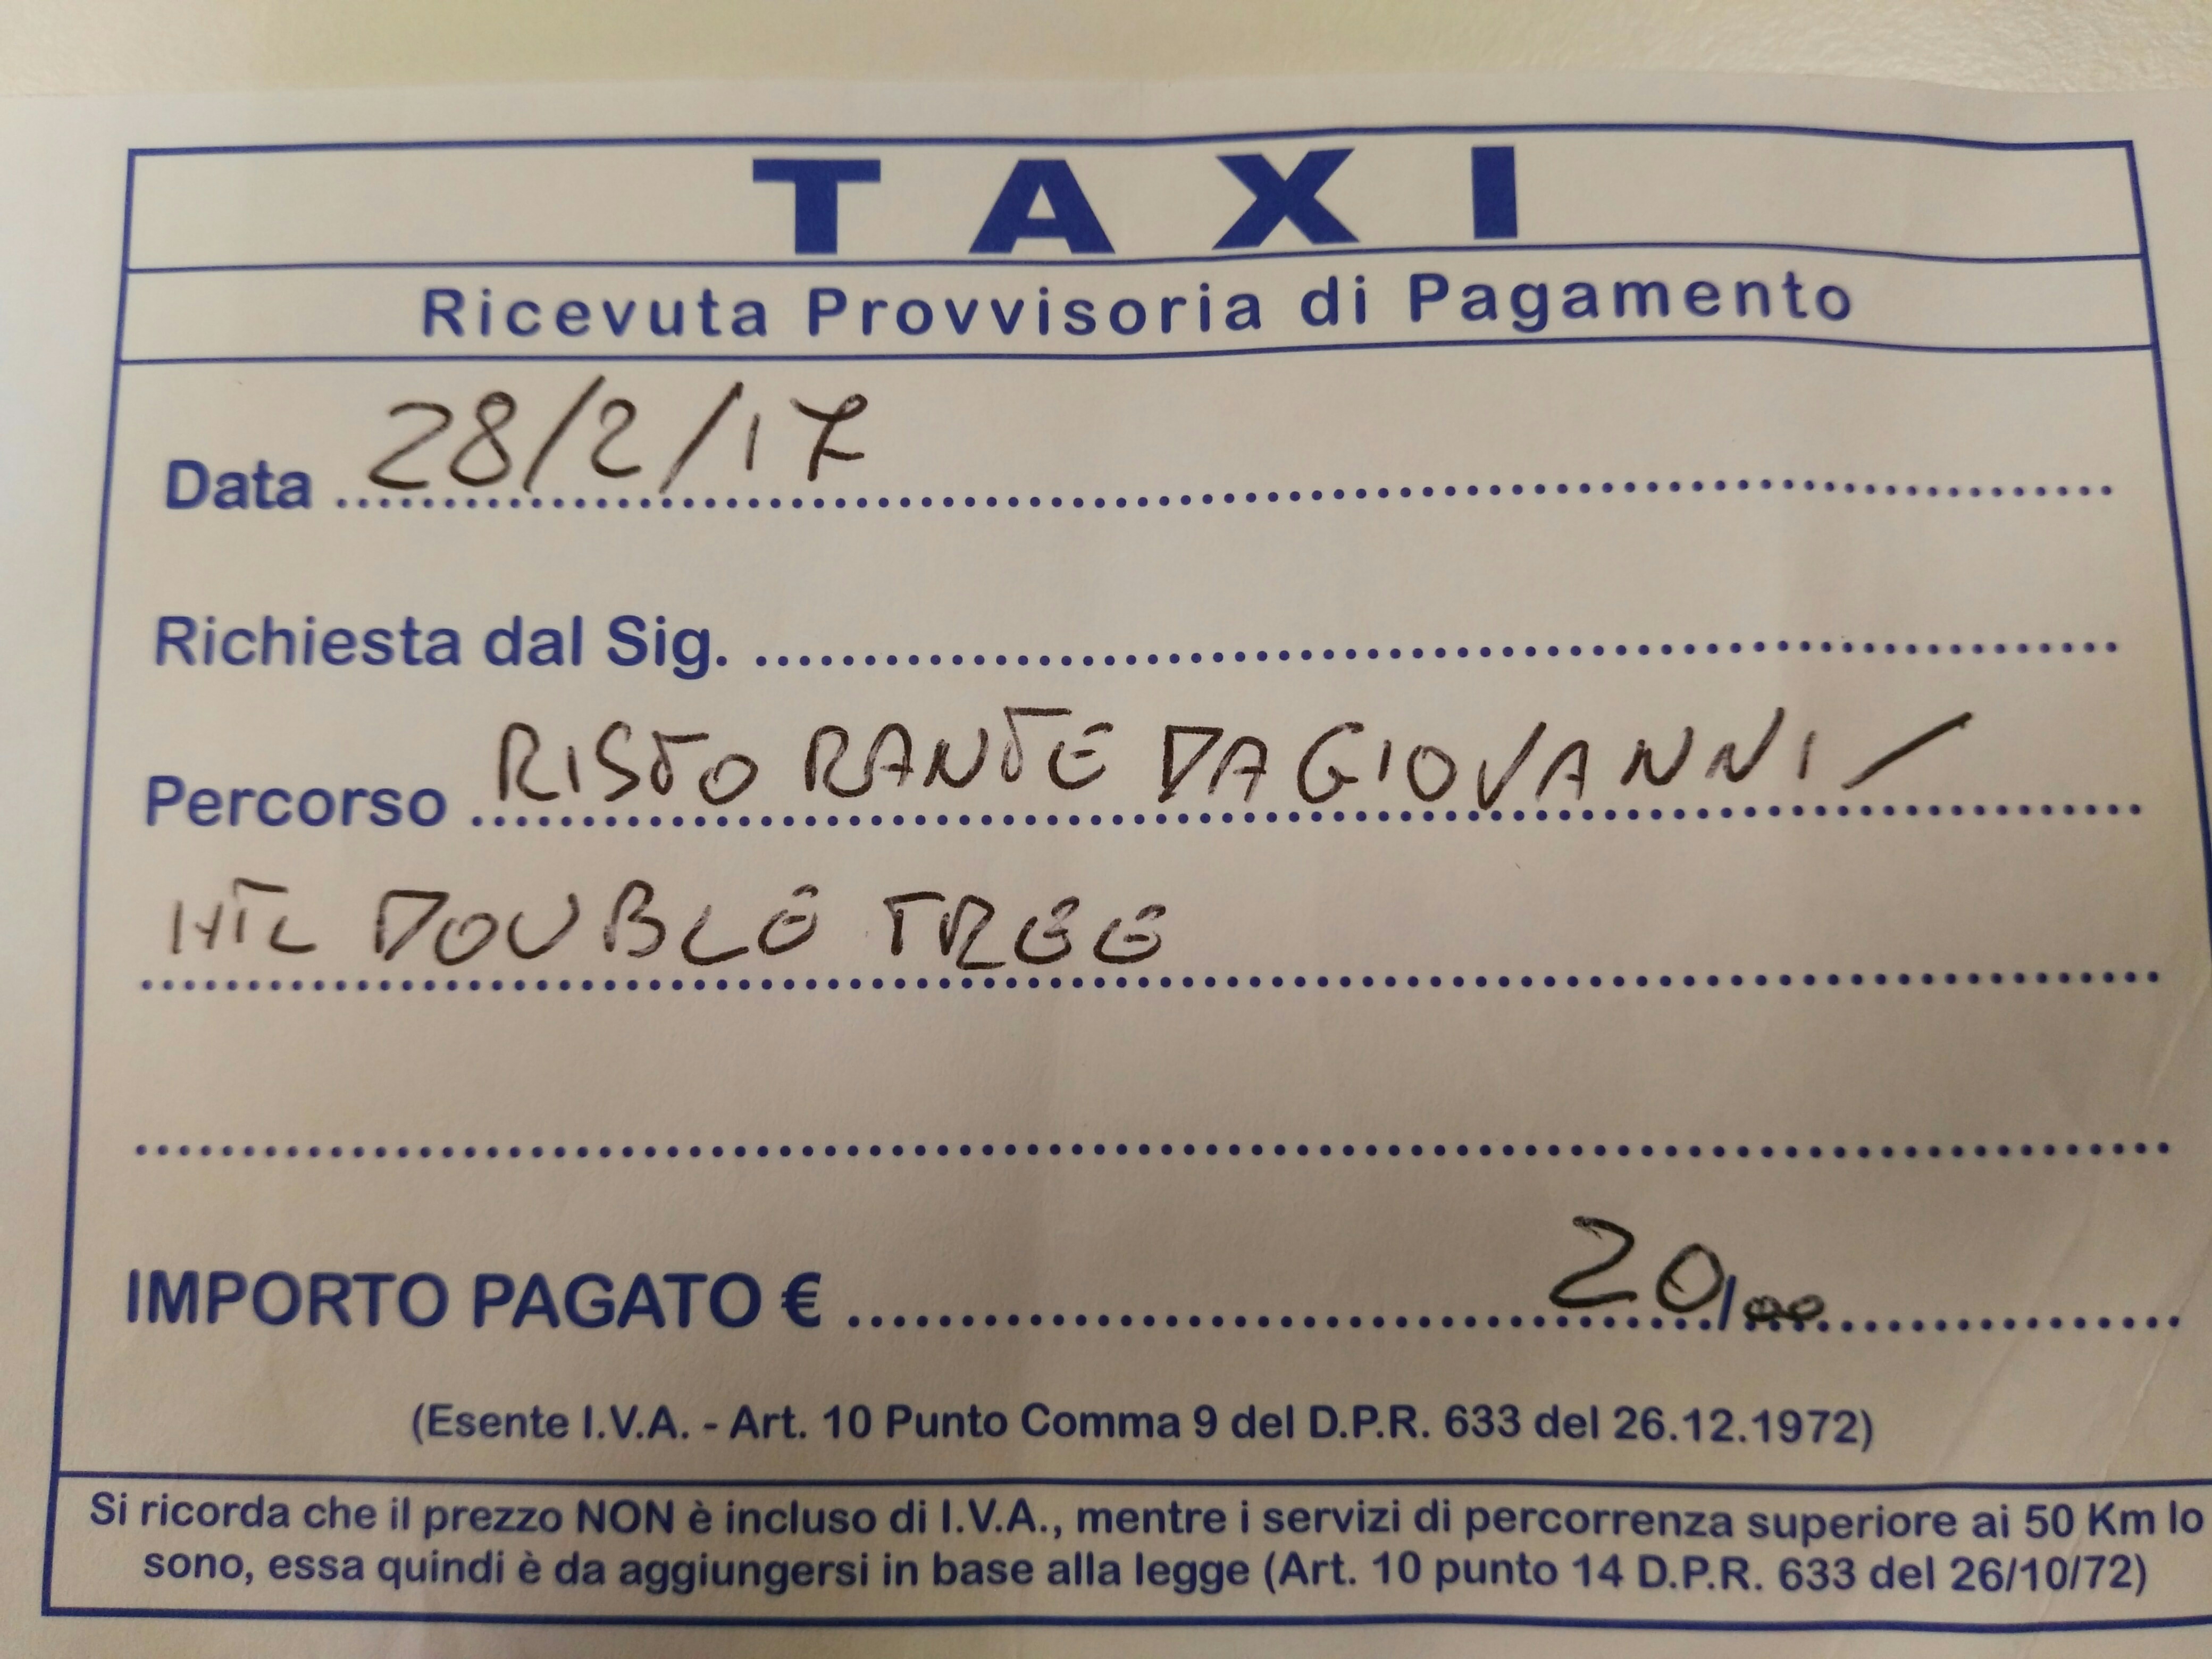 TAXI
Ricevuta Provvisoria di Pagamento
Data 28/2/17
Richiesta dal Sig.
Percorso RISTORANTE DA GIOVANNI /
HTL DOUBLE TREE
IMPORTO PAGATO € 20,00
(Esente I.V.A. - Art. 10 Punto Comma 9 del D.P.R. 633 del 26.12.1972)
Si ricorda che il prezzo NON è incluso di I.V.A., mentre i servizi di percorrenza superiore ai 50 Km lo
sono, essa quindi è da aggiungersi in base alla legge (Art. 10 punto 14 D.P.R. 633 del 26/10/72)